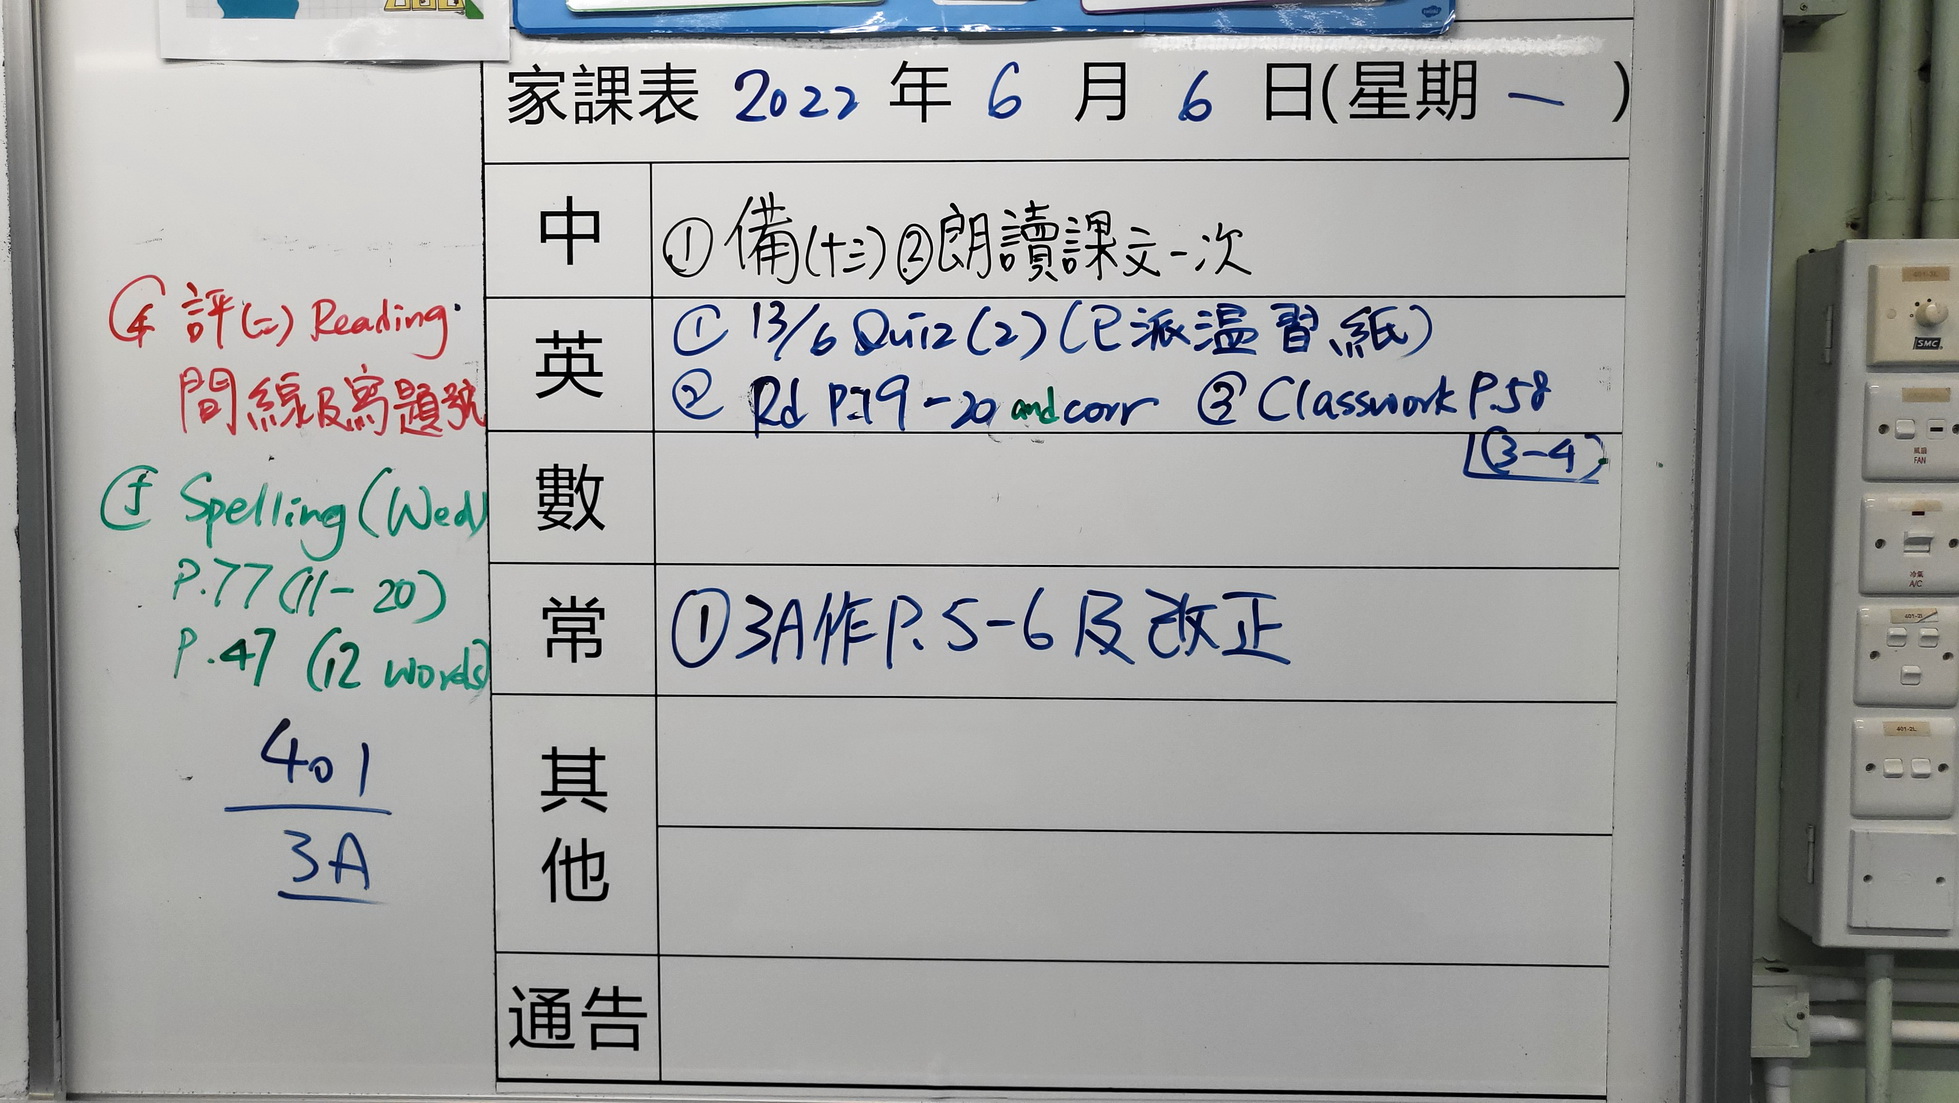 家課表 2022 年 6 月 6 日(星期 一 )
中 ① 備(十三) ② 朗讀課文一次
英 ① 13/6 Quiz (2) (已派温習紙)
② Rd P.19-20 and corr ③ Classwork P.58
(3-4)
數
常 ① 3A作 P.5-6 及改正
其他
通告
④ 評(二) Reading
間線及寫題號
⑤ Spelling (Wed)
P.77 (11-20)
P.47 (12 words)
401
3A
SMC
風扇
FAN
冷氣
A/C
401-2L